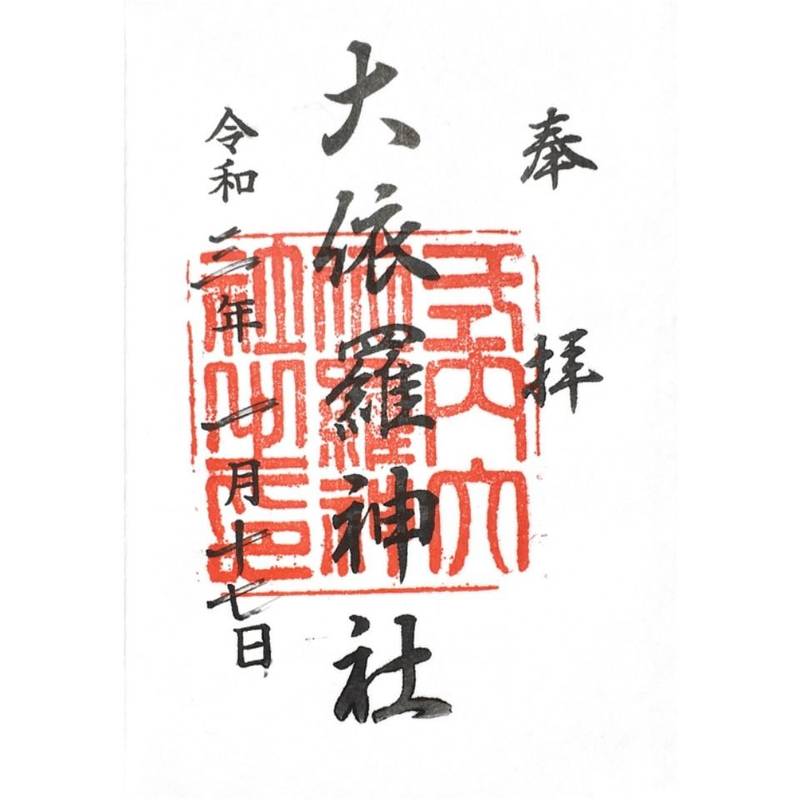 奉拝
大依羅神社
令和三年一月十七日
式内大
依羅神
社之印